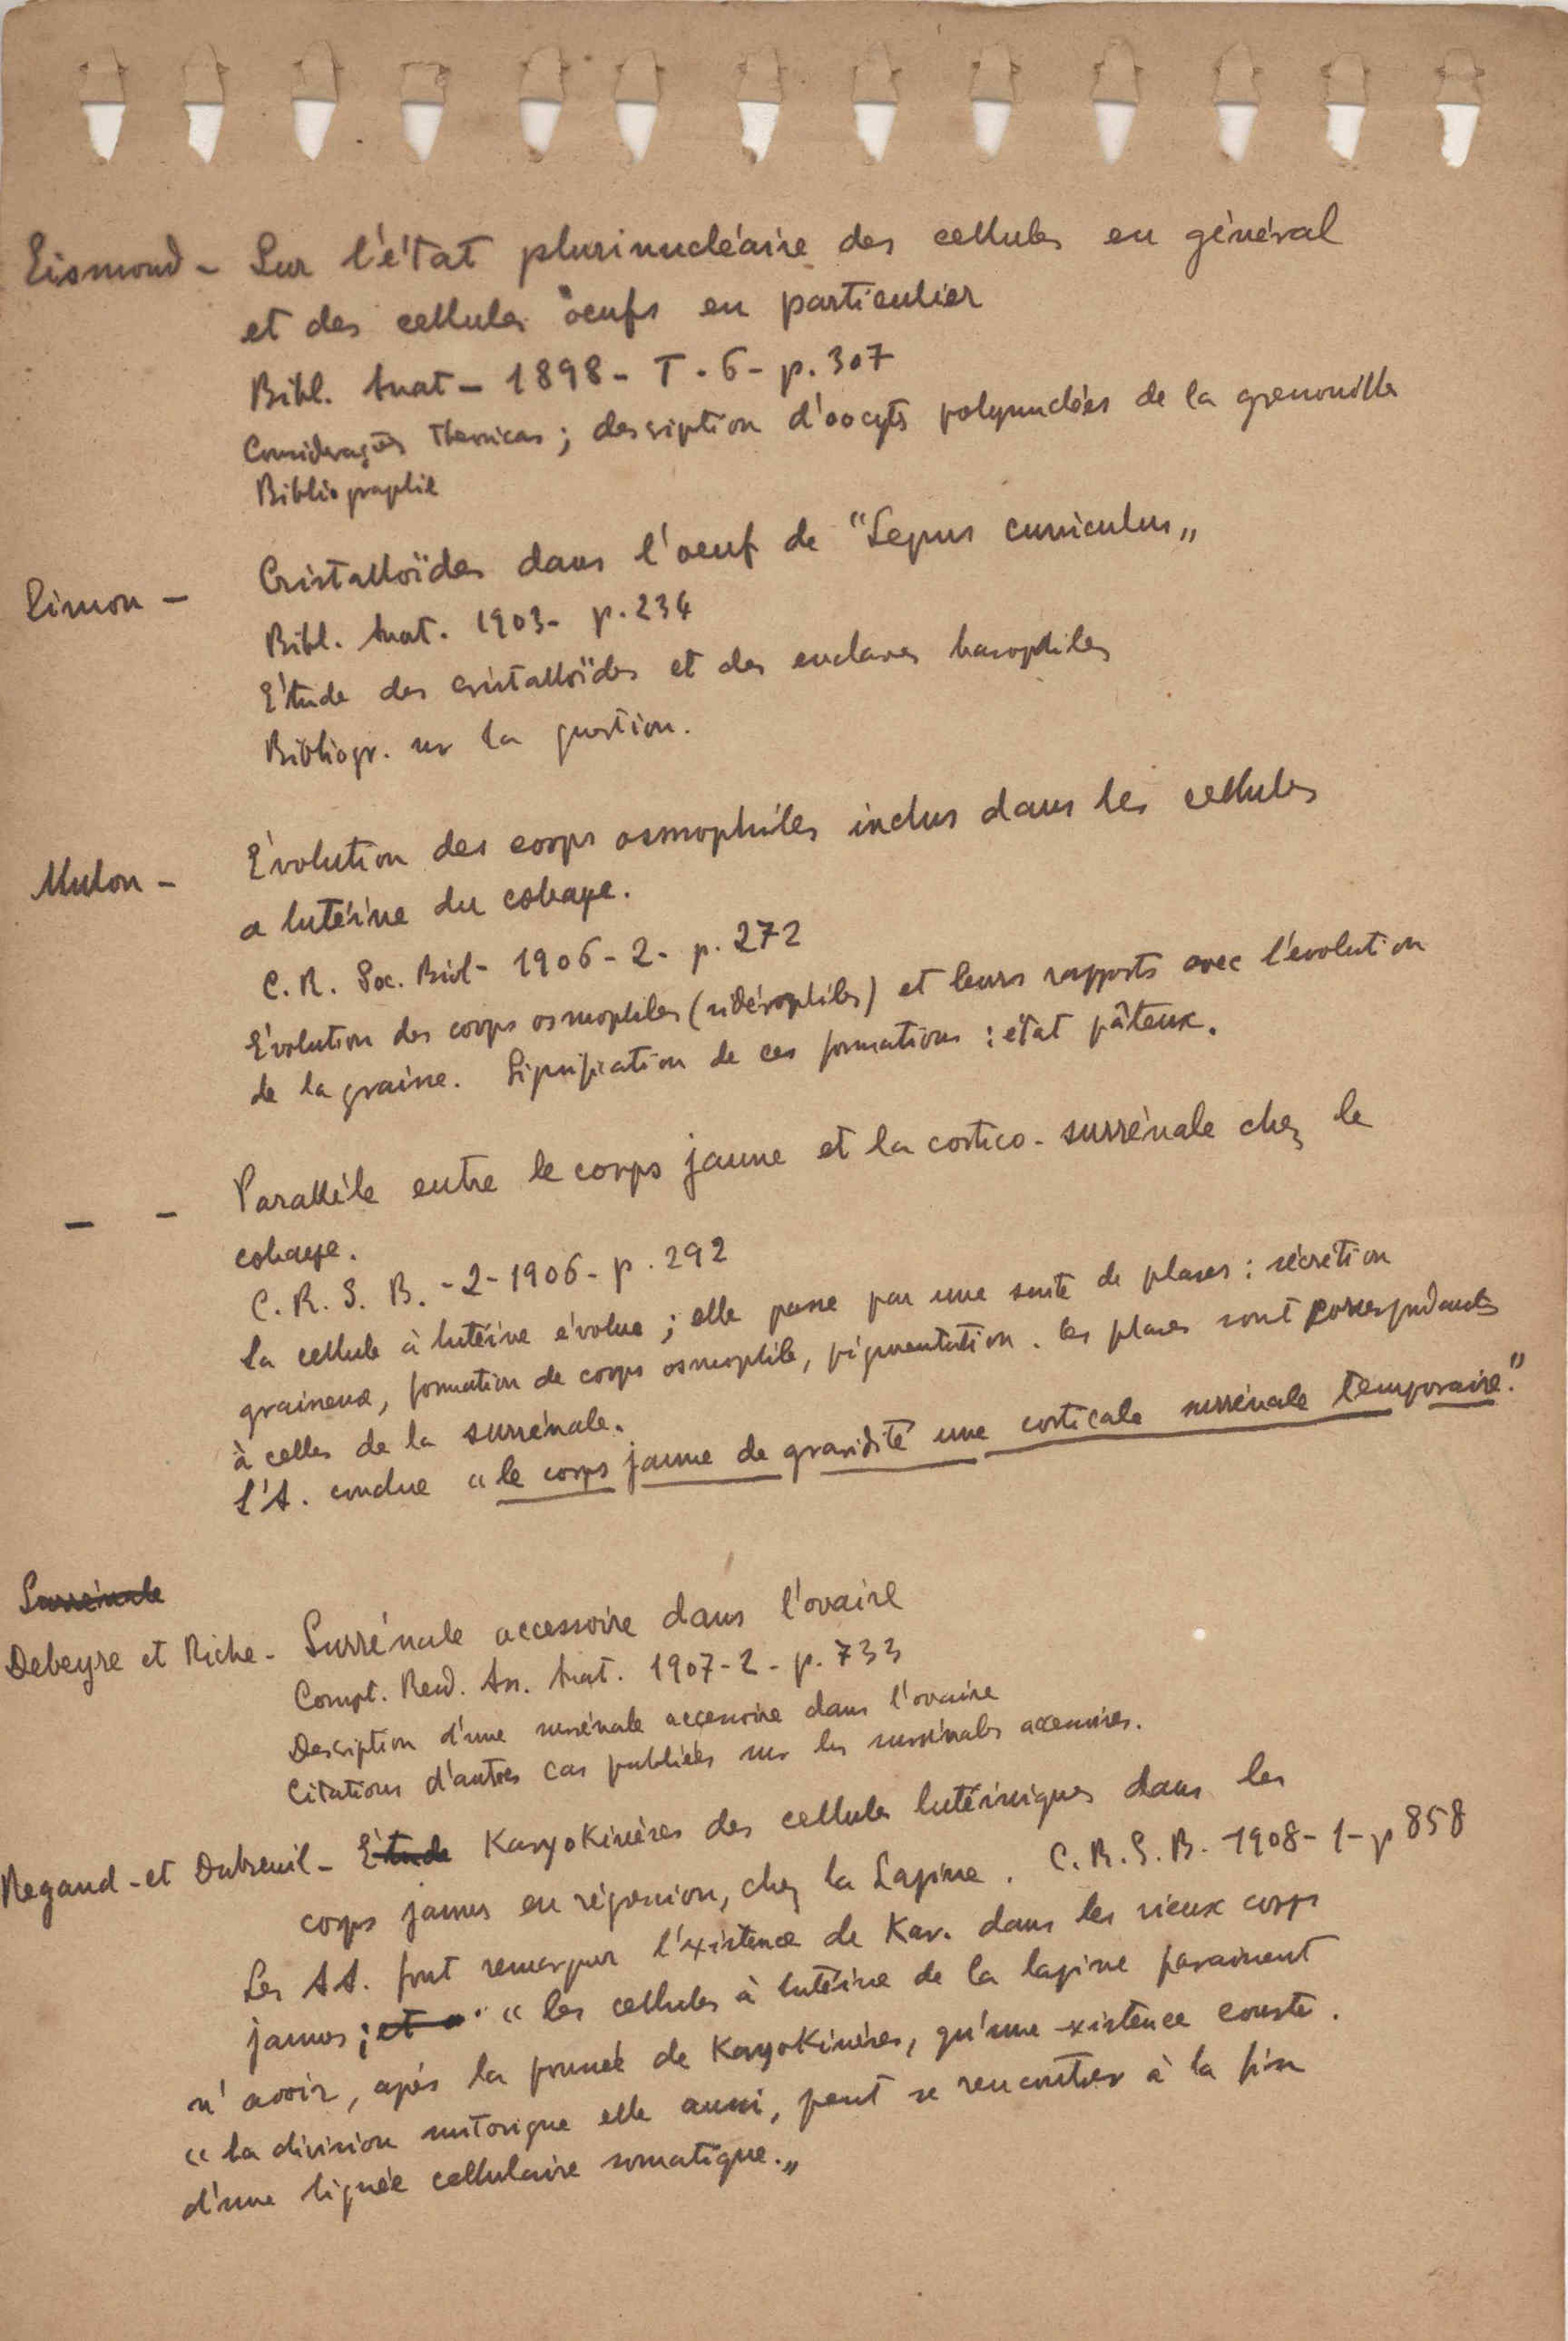 Eismond - Sur l'état plurinucléaire des cellules en général
et des cellules oeufs en particulier
Bibl. Anat - 1898 - T. 6 - p. 307
Considerações theoricas; description d'oocyts polynucléés de la grenouille
Bibliographie
Limon - Cristalloïdes dans l'oeuf de "Lepus cuniculus"
Bibl. Anat. 1903 - p. 234
Étude des cristalloïdes et des enclaves basophiles
Bibliogr. sur la question.
Mulon - Évolution des corps osmophiles inclus dans les cellules
a lutéine du cobaye.
C. R. Soc. Biol - 1906 - 2 - p. 272
Évolution des corps osmophiles (sidérophiles) et leurs rapports avec l'évolution
de la graisse. Liquification de ces formations : état pâteux.
- - Parallèle entre le corps jaune et la cortico-surrénale chez le
cobaye.
C. R. S. B. - 2 - 1906 - p. 292
La cellule à lutéine évolue ; elle passe par une suite de phases : sécrétion
graisseux, formation de corps osmophile, pigmentation. les phases sont correspondants
à celles de la surrénale.
L'A. conclue "le corps jaune de gravidité une corticale surrénale temporaire."
Surrénale
Debeyre et Riche - Surrénale accessoire dans l'ovaire
Compt. Rend. Ass. Anat. 1907 - 2 - p. 733
Description d'une surrénale accessoire dans l'ovaire
Citations d'autres cas publiées sur les surrénales accessoires.
Regaud - et Dubreuil - Étude Karyokinèses des cellules lutéiniques dans les
corps jaunes en régression, chez la Lapine. C. R. S. B. - 1908 - 1 - p 858
Les AA. font remarquer l'existence de Kar. dans les vieux corps
jaunes ; et "les cellules à lutéine de la lapine paraissent
n'avoir, après la poussée de Karyokinèses, qu'une existence courte.
"la division mitosique elle aussi, peut se rencontrer à la fin
d'une lignée cellulaire somatique."